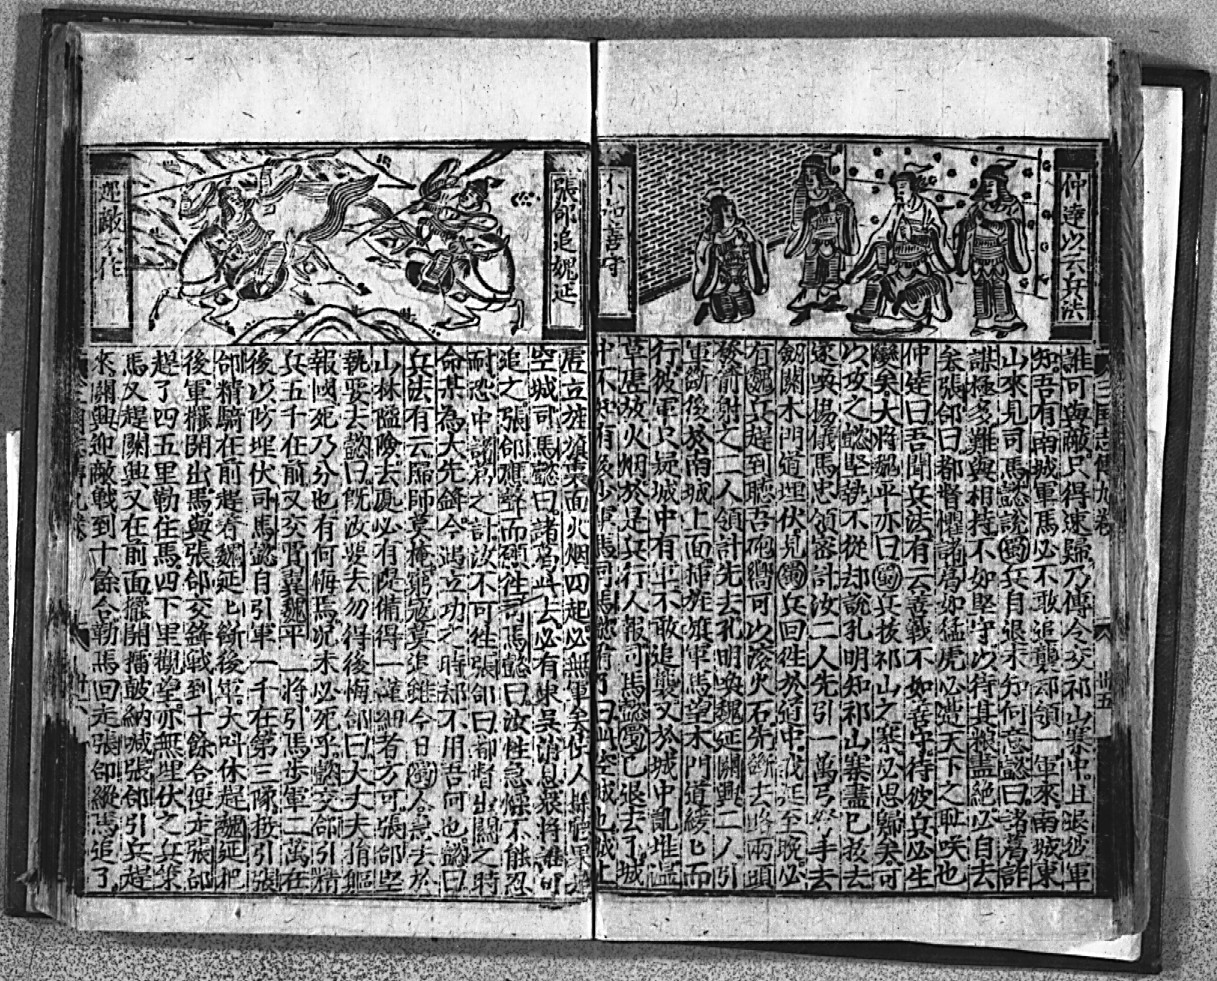 仲達以云兵法
不如善守
誰可與敵只得速歸乃傳令交祁山寨中且退彼軍
知吾有南城軍馬必不敢追襲却領一軍來南城東
山來見司馬懿說蜀兵自退未知何意懿曰諸葛詐
謀極多難與相持不如堅守以待其粮盡絕必自去
矣張郃曰都督懼諸葛如猛虎必遭天下之耻咲也
仲達曰吾聞兵法有云善戰不如善守待彼兵必生
變矣大將魏平亦曰蜀兵扳祁山之寨必思歸矣可
以攻之懿堅執不從却說孔明知祁山寨盡已扳去
遂喚楊儀馬忠領密計汝二人先引一萬弓弩手去
劒閣木門道埋伏見蜀兵回徃於道中 至晚必
有魏兵趕到聽吾砲嚮可以滚火石先斷去路兩頭
發箭射之二人領計先去孔明喚魏延關興二人引
軍斷後於南城上面挿旌旗軍馬望木門道綾匕而
行彼軍只疑城中有 不敢追襲又於城中亂堆
草虛放火烟於是兵行人報司馬懿蜀已退去了城
中不知有 軍馬司馬懿 曰此空城也城上
張郃追魏延
迎敵不住
虛立旌旗東面火烟四起必無軍矣使人 果
空城司馬懿曰諸葛此去必有東吳消息 將誰可
追之張郃應聲而 徃司馬懿曰汝性急燥不能忍
耐恐中諸葛之計汝不可徃張郃曰都督出關之時
命某為大先鋒今 立功之時却不用吾何也懿曰
兵法有云歸師莫掩窮寇莫追雖今日蜀人 去於
山林隘險去處必有隄備得一謹細者方可張郃堅
執要去懿曰既汝要去勿得後悔郃曰大丈夫捐軀
報國死乃分也有何悔焉况未必死乎懿交郃引精
兵五千在前又交賈翼魏平二將引馬步軍二萬在
後以防埋伏司馬懿自引軍一千在第三隊接引張
郃精騎在前趕着魏延匕斷後軍大叫休趕魏延把
後軍擺開出馬與張郃交鋒戰到十餘合便走張郃
趕了四五里勒住馬四下里觀望亦無埋伏之兵策
馬又趕關興又在前面擺開擂鼓納喊張郃引兵趕
來關興迎敵戰到十餘合勒馬回走張郃縱馬追了